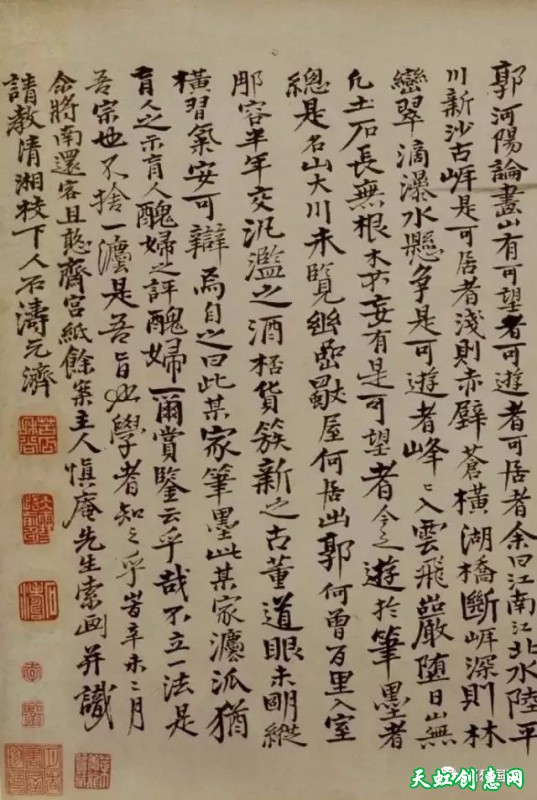 郭河陽論畫山有可望者可遊者可居者余曰江南江北水陸平
川新沙古岸是可居者淺則赤壁蒼橫湖橋斷岸深則林
巒翠滴瀑水懸爭是可遊者峰〻入雲飛巖墮日山無
凡土石長無根木不妄有是可望者今之遊於筆墨者
總是名山大川未覽幽巖獨屋何居出郭何曾百里入室
那容半年交汎濫之酒桮貨簇新之古董道眼未明縱
橫習氣安可辯焉自之曰此某家筆墨此某家灋派猶
盲人之示盲人醜婦之評醜婦爾賞鑒云乎哉不立一法是
吾宗也不捨一灋是吾旨也學者知之乎旹辛未二月
余將南還客且憨齋宮紙餘案主人慎庵先生索画并識
請教清湘枝下人石濤元濟
天虹创意网